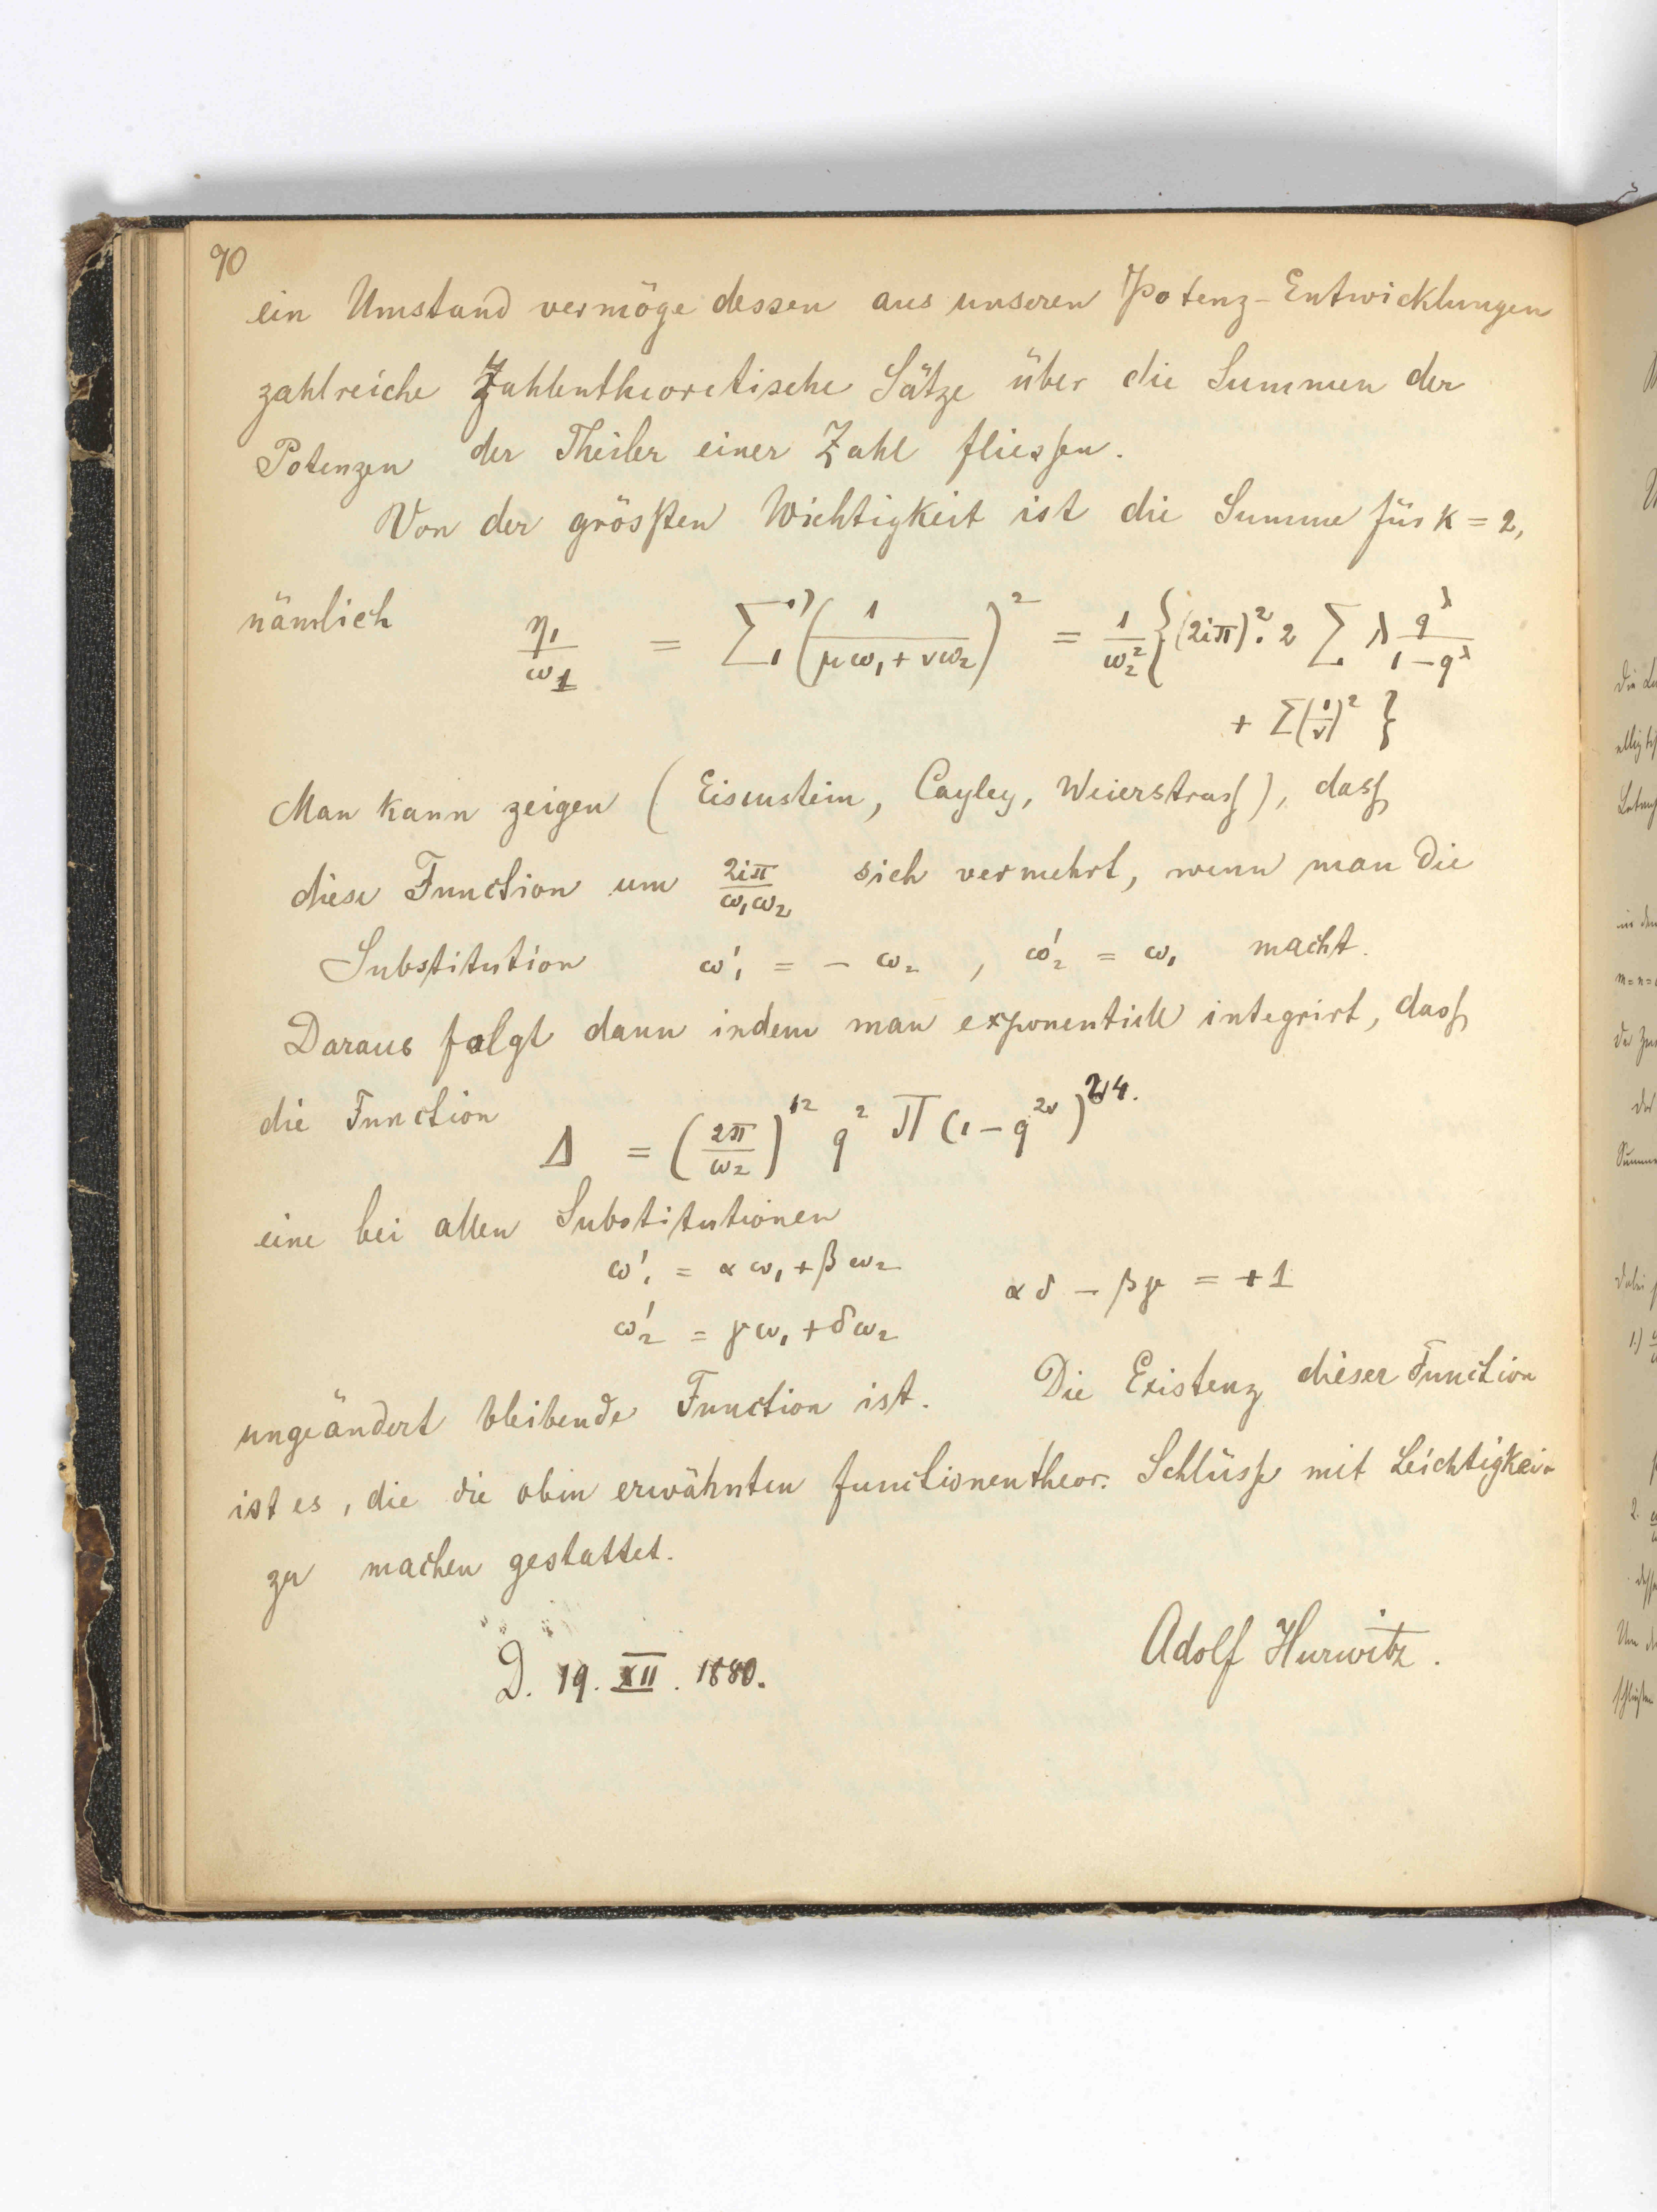 90
ein Umstand vermöge dessen aus unseren Potenz-Entwicklungen
zahlreiche Zahlentheoretische Sätze über die Summen der
Potenzen der Theiler einer Zahl fliessen.
Von der grössten Wichtigkeit ist die Summe für k = 2,
nämlich η₁/ω₁ = Σ' (1/(μω₁ + νω₂))² = 1/ω₂² {(2iπ)². 2 Σ λ q^λ/(1 − q^λ)
+ Σ(1/ν)² }
Man kann zeigen (Eisenstein, Cayley, Weierstrass), dass
diese Function um 2iπ/ω₁ω₂ sich vermehrt, wenn man die
Substitution ω'₁ = − ω₂ , ω'₂ = ω₁ macht.
Daraus folgt dann indem man exponentiell integrirt, dass
die Function Δ = (2π/ω₂)¹² q² Π (1 − q^2ν)^24.
eine bei allen Substitutionen
ω'₁ = αω₁ + βω₂
αδ − βγ = +1
ω'₂ = γω₁ + δω₂
ungeändert bleibende Function ist. Die Existenz dieser Function
ist es, die die oben erwähnten functionentheor. Schlüsse mit Leichtigkei
zu machen gestattet.
Adolf Hurwitz.
D. 19. XII. 1880.